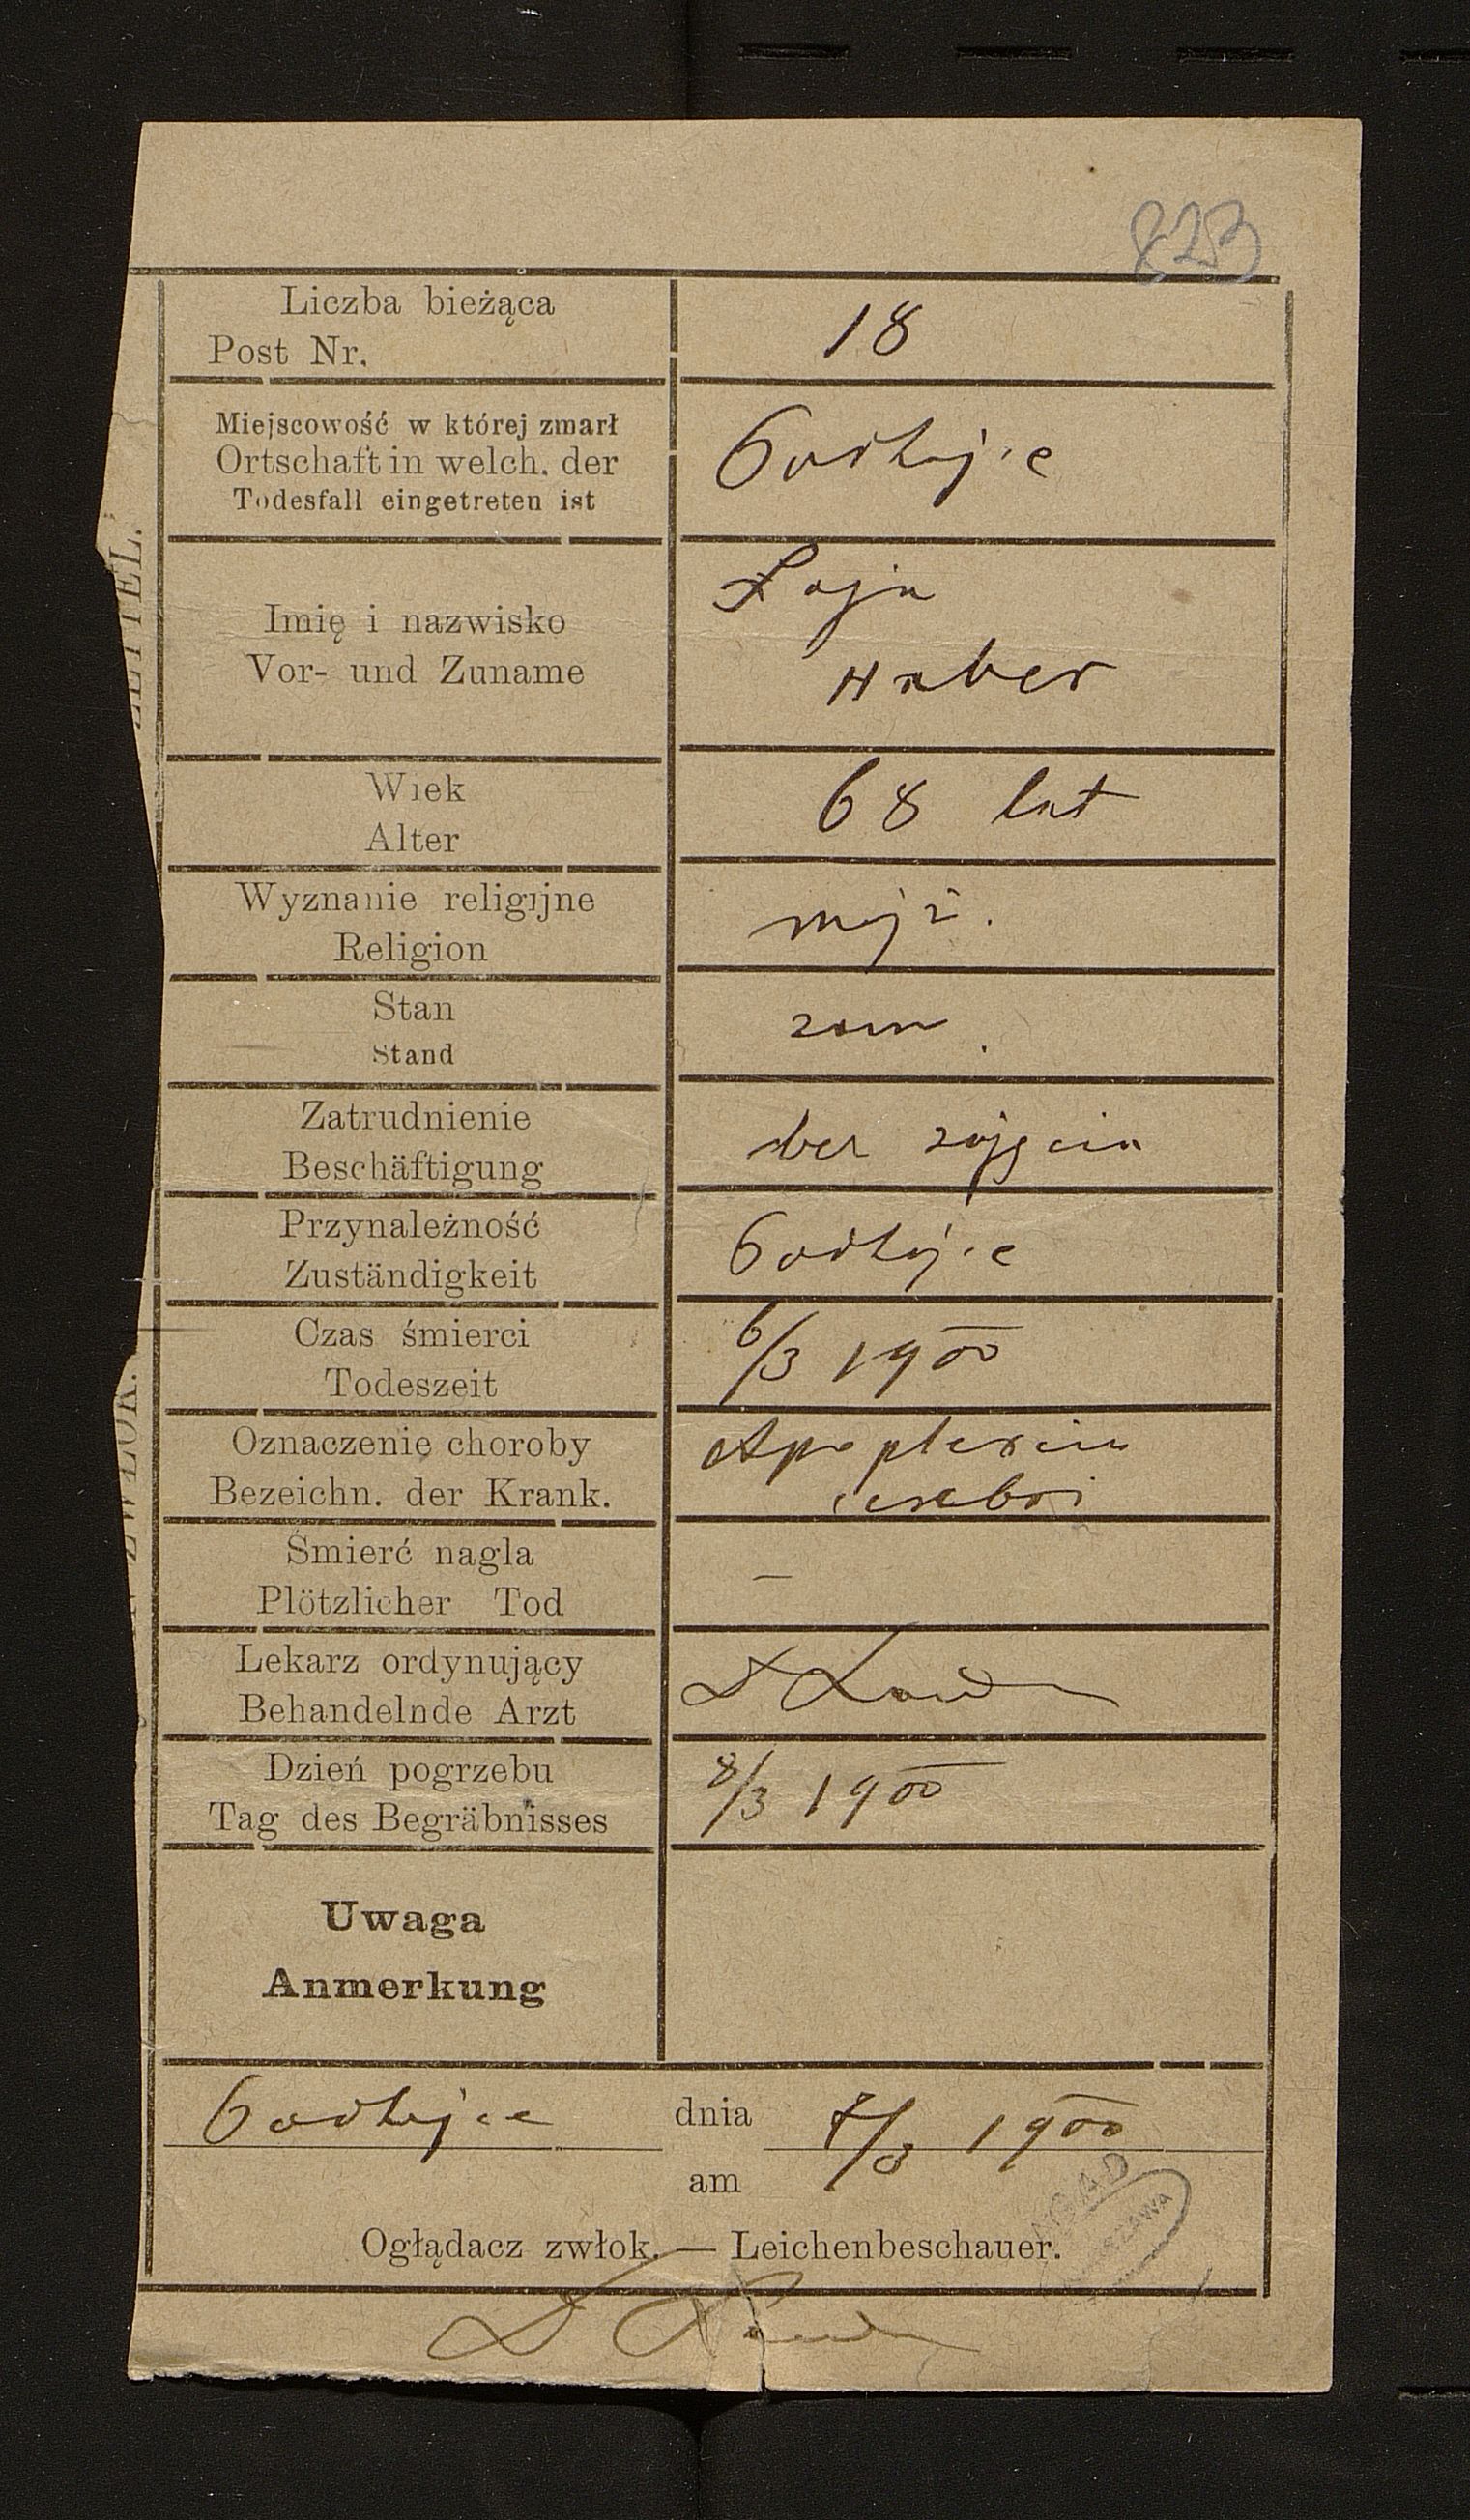 823
Liczba bieżąca
Post Nr.
18
Miejscowość w której zmarł
Ortschaft in welch. der
Todesfall eingetreten ist
Podhajce
Imię i nazwisko
Vor- und Zuname
Haber
Wiek
Alter
68 lat
Wyznanie religijne
Religion
mojż.
Stan
Stand
zam.
Zatrudnienie
Beschäftigung
bez zajęcia
Przynależność
Zuständigkeit
Podhajce
Czas śmierci
Todeszeit
6/3 1900
Oznaczenie choroby
Bezeichn. der Krank.
Apoplexia
cerebri
Śmierć nagla
Plötzlicher Tod
–
Lekarz ordynujący
Behandelnde Arzt
Dzień pogrzebu
Tag des Begräbnisses
8/3 1900
Uwaga
Anmerkung
Podhajce dnia 7/3 1900
am
AGAD
Oglądacz zwłok. — Leichenbeschauer.